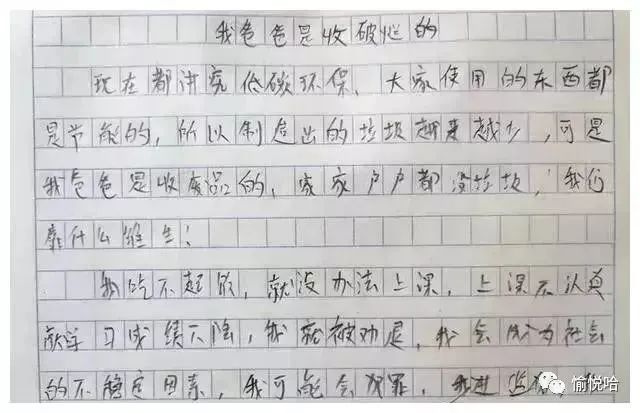 我爸爸是收破烂的
现在都讲究低碳环保，大家使用的东西都
是节能的，所以制造出的垃圾越来越少，可是
我爸爸是收废品的，家家户户都没垃圾，我们
靠什么维生！
我吃不起饭，就没办法上课，上课不认真
学习成绩下降，我就被劝退，我会成为社会
的不稳定因素，我可能会犯罪，我进监
愉悦哈